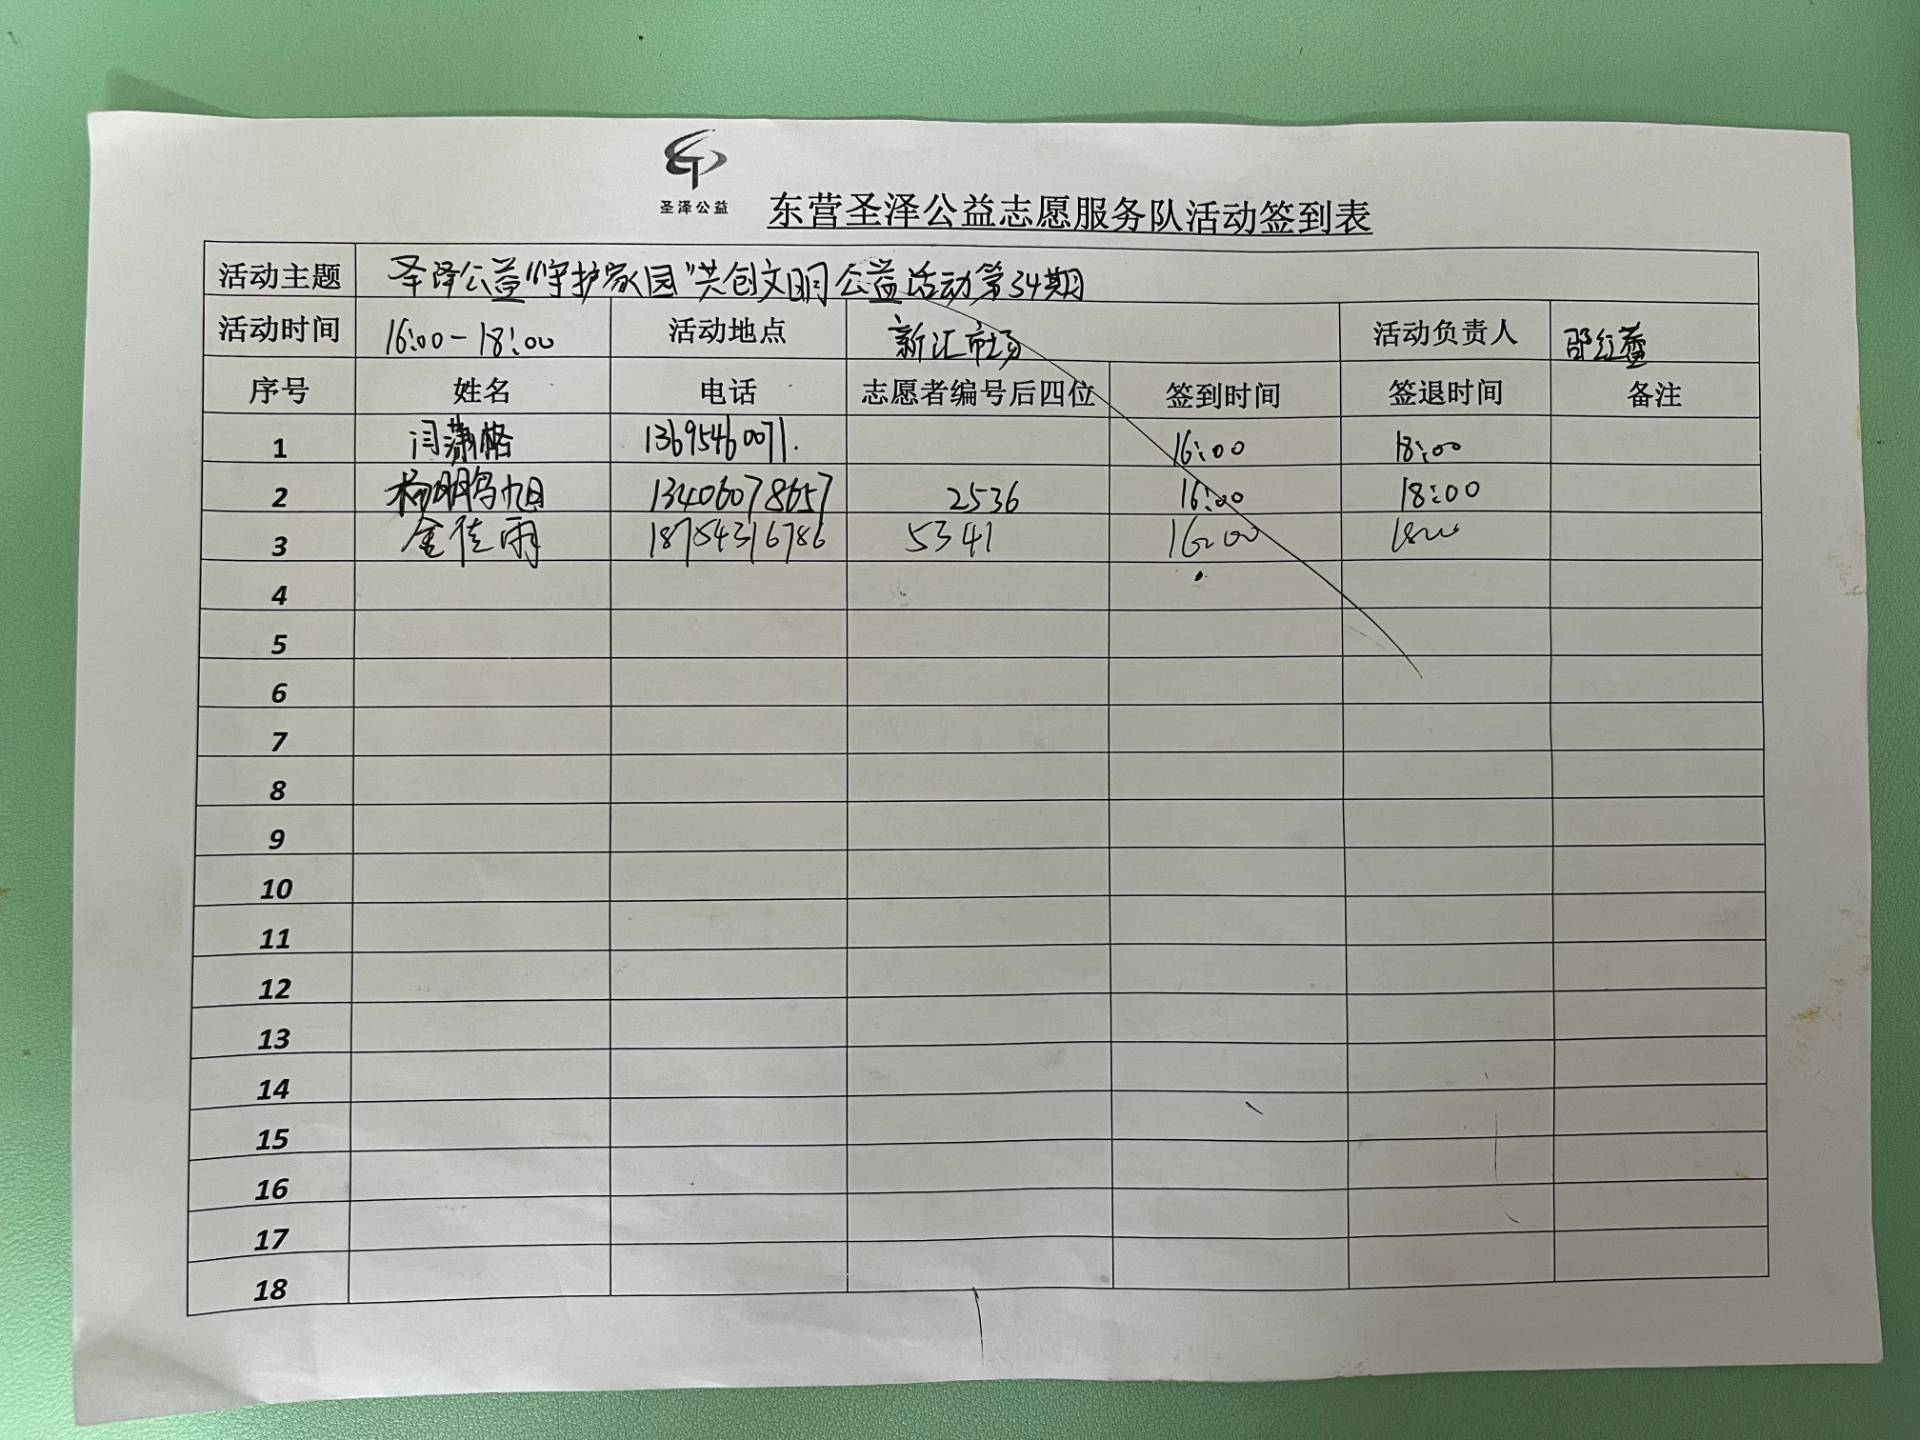 圣泽公益
东营圣泽公益志愿服务队活动签到表
活动主题 圣泽公益“守护家园”共创文明公益活动第34期
活动时间 16:00-18:00 活动地点 新汇市场 活动负责人 邵红蕾
序号 姓名 电话 志愿者编号后四位 签到时间 签退时间 备注
1 闫潇格 13695460071. 16:00 18:00
2 杨鹏旭 13406078657 2536 16:00 18:00
3 金佳雨 18754316786 5341 16:00 18:00
4
5
6
7
8
9
10
11
12
13
14
15
16
17
18